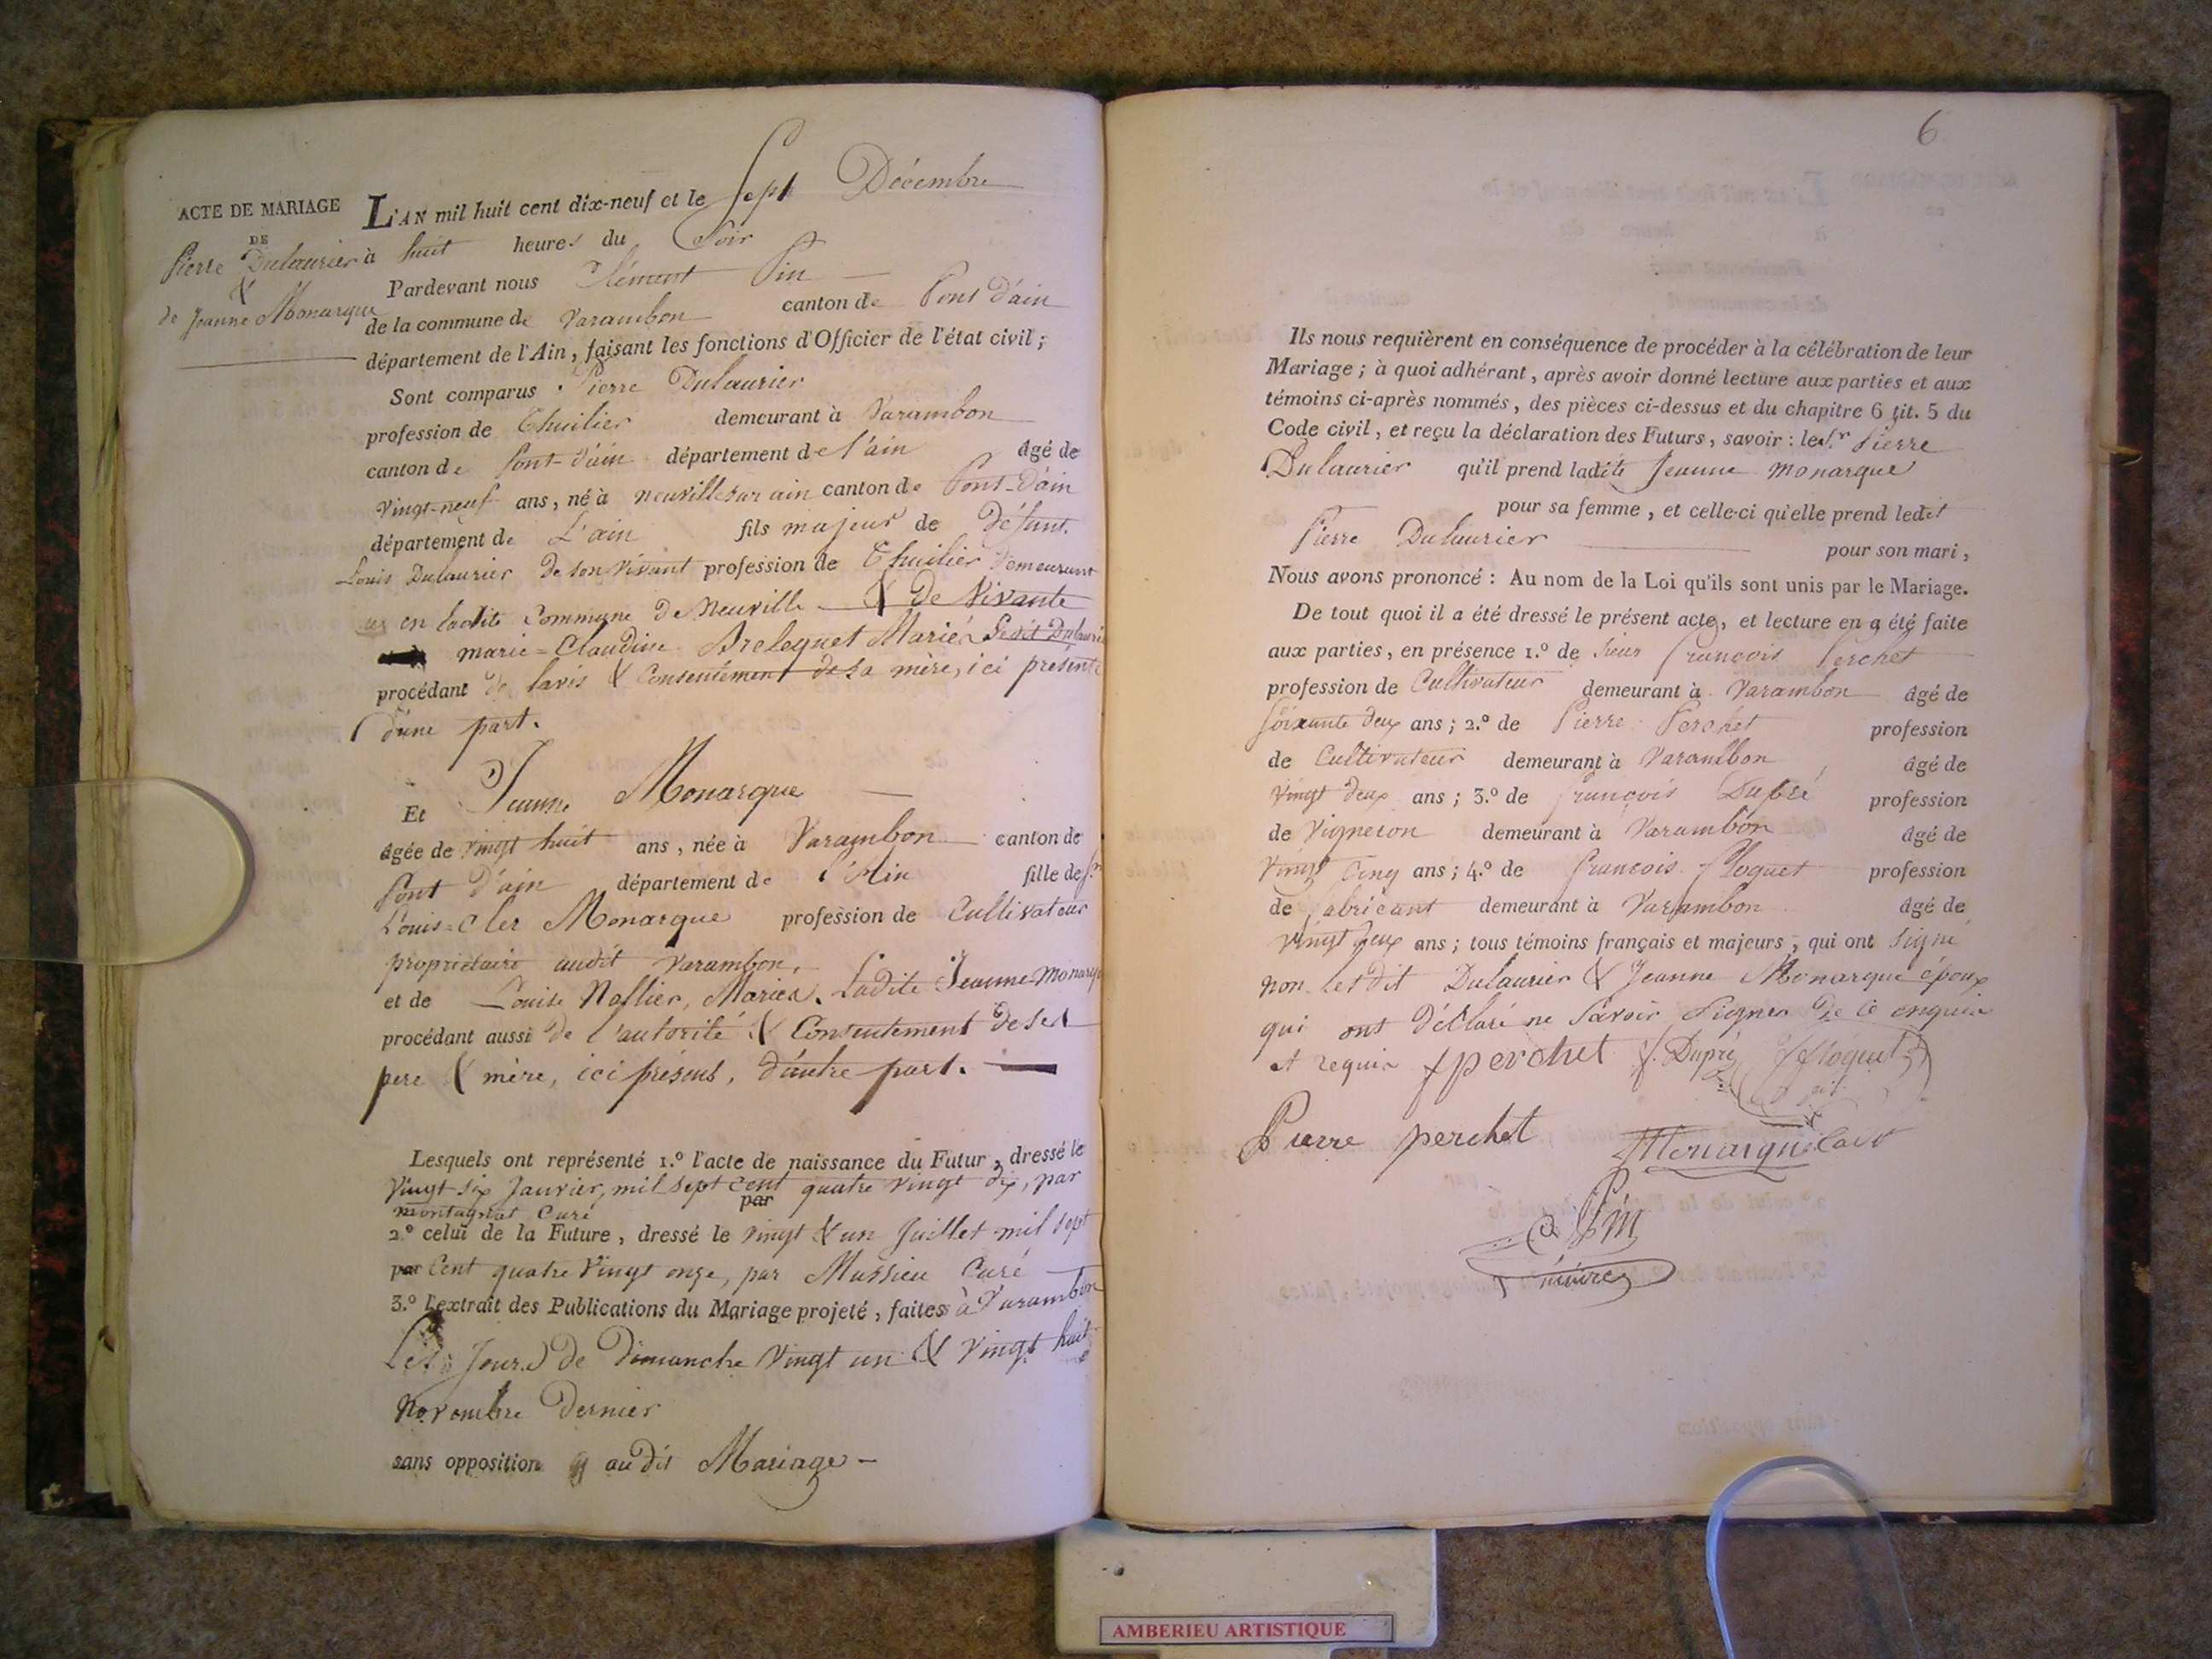 ACTE DE MARIAGE
DE
Pierre Dulaurier
&
de Jeanne Monarque
L'AN mil huit cent dix-neuf et le Sept Décembre
à huit heures du Soir
Pardevant nous Clément Pin
de la commune de Varambon canton de Pont d'ain
département de l'Ain, faisant les fonctions d'Officier de l'état civil ;
Sont comparus Pierre Dulaurier
profession de Thuilier demeurant à Varambon
canton de Pont-d'ain département de l'ain âgé de
vingt-neuf ans, né à neuville sur ain canton de Pont-d'ain
département de L'ain fils majeur de défunt
Louis Dulaurier de son vivant profession de Thuilier demeurant
en ladite Commune de Neuville & de Vivante
marie=Claudine Mariés
procédant de lavis & Consentement de sa mère, ici présente
d'une part.
Et Jeanne Monarque
âgée de vingt huit ans, née à Varambon canton de
Pont d'ain département de l'Ain fille de Sr
Louis=Cler Monarque profession de Cultivateur
propriétaire audit Varambon,
et de Louise Mariés. Ladite Jeanne Monarque
procédant aussi de l'autorité & Consentement de ses
pere & mère, ici présens, d'autre part.
Lesquels ont représenté 1.º l'acte de naissance du Futur, dressé le
vingt six Janvier, mil sept cent quatre vingt dix, par
par
montagnat Curé
2.º celui de la Future, dressé le vingt & un Juillet mil sept
par Cent quatre vingt onze, par Mussieu Curé
3.º l'extrait des Publications du Mariage projeté, faites à Varambon
Les Jours de Dimanche vingt un & vingt huit
Novembre Dernier
sans opposition au dit Mariage
6
Ils nous requièrent en conséquence de procéder à la célébration de leur
Mariage ; à quoi adhérant, après avoir donné lecture aux parties et aux
témoins ci-après nommés, des pièces ci-dessus et du chapitre 6 tit. 5 du
Code civil, et reçu la déclaration des Futurs, savoir : le Sr Pierre
Dulaurier qu'il prend ladite Jeanne Monarque
pour sa femme, et celle-ci qu'elle prend ledit
Pierre Dulaurier pour son mari,
Nous avons prononcé : Au nom de la Loi qu'ils sont unis par le Mariage.
De tout quoi il a été dressé le présent acte, et lecture en a été faite
aux parties, en présence 1.º de Sieur françois Perchet
profession de Cultivateur demeurant à Varambon âgé de
Soixante deux ans ; 2.º de Pierre Perchet profession
de Cultivateur demeurant à Varambon, âgé de
vingt deux ans ; 3.º de françois Dupré profession
de Vigneron demeurant à Varambon âgé de
Vingt Cinq ans ; 4.º de francois Floquet profession
de fabricant demeurant à Varambon âgé de
vingt deux ans ; tous témoins français et majeurs, qui ont signé
non lesdit Dulaurier & Jeanne Monarque époux
qui ont déclaré ne Savoir Signer de ce enquis
et requis f perchet f. Dupré f floquet
Pierre perchet Monarque
C Pin
maire
AMBERIEU ARTISTIQUE